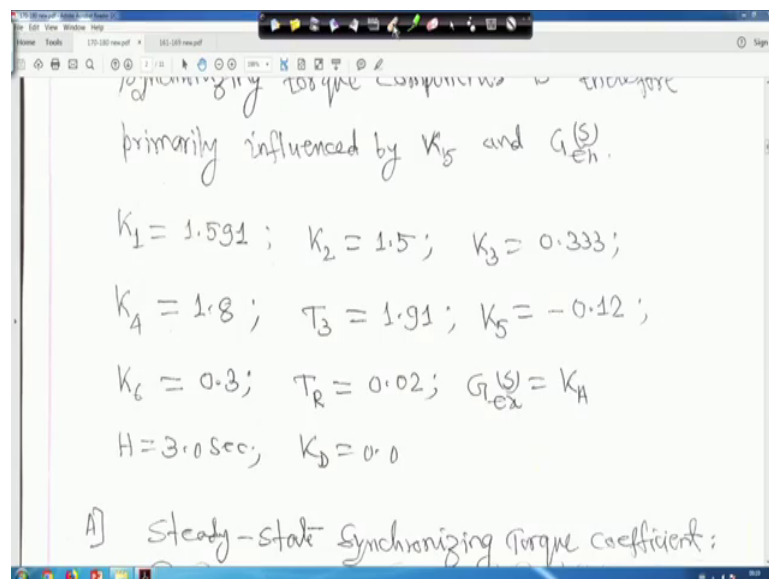 170-180 new.pdf - Adobe Acrobat Reader DC
File Edit View Window Help
Home Tools 170-180 new.pdf × 161-169 new.pdf Sign
2 / 11
Synchronizing torque components is therefore
primarily influenced by K5 and Gex(s).
K1 = 1.591 ; K2 = 1.5 ; K3 = 0.333 ;
K4 = 1.8 ; T3 = 1.91 ; K5 = -0.12 ;
K6 = 0.3 ; TR = 0.02 ; Gex(s) = KA
H = 3.0 sec, KD = 0.0
A] Steady-state Synchronizing Torque coefficient :